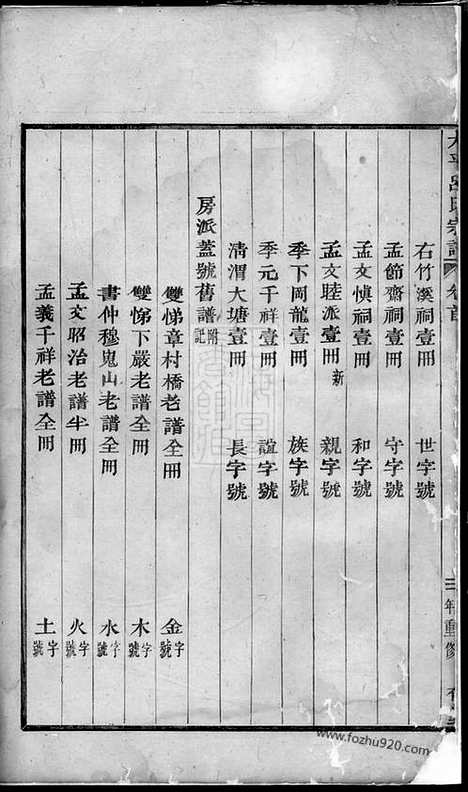 右竹溪祠壹冊 世字號
孟節齋祠壹冊 守字號
孟文慎祠壹冊 和字號
孟文睦派壹冊新 親字號
季下岡龍壹冊 族字號
季元千祥壹冊 誼字號
清渭大塘壹冊 長字號
房派蓋號舊譜附記
雙悌章村橋老譜全冊 金字號
雙悌下嚴老譜全冊 木字號
書仲穆鬼山老譜全冊 水字號
孟文昭治老譜半冊 火字號
孟義千祥老譜全冊 土字號
呂氏宗譜 卷首
年重修
www.fozhu920.com